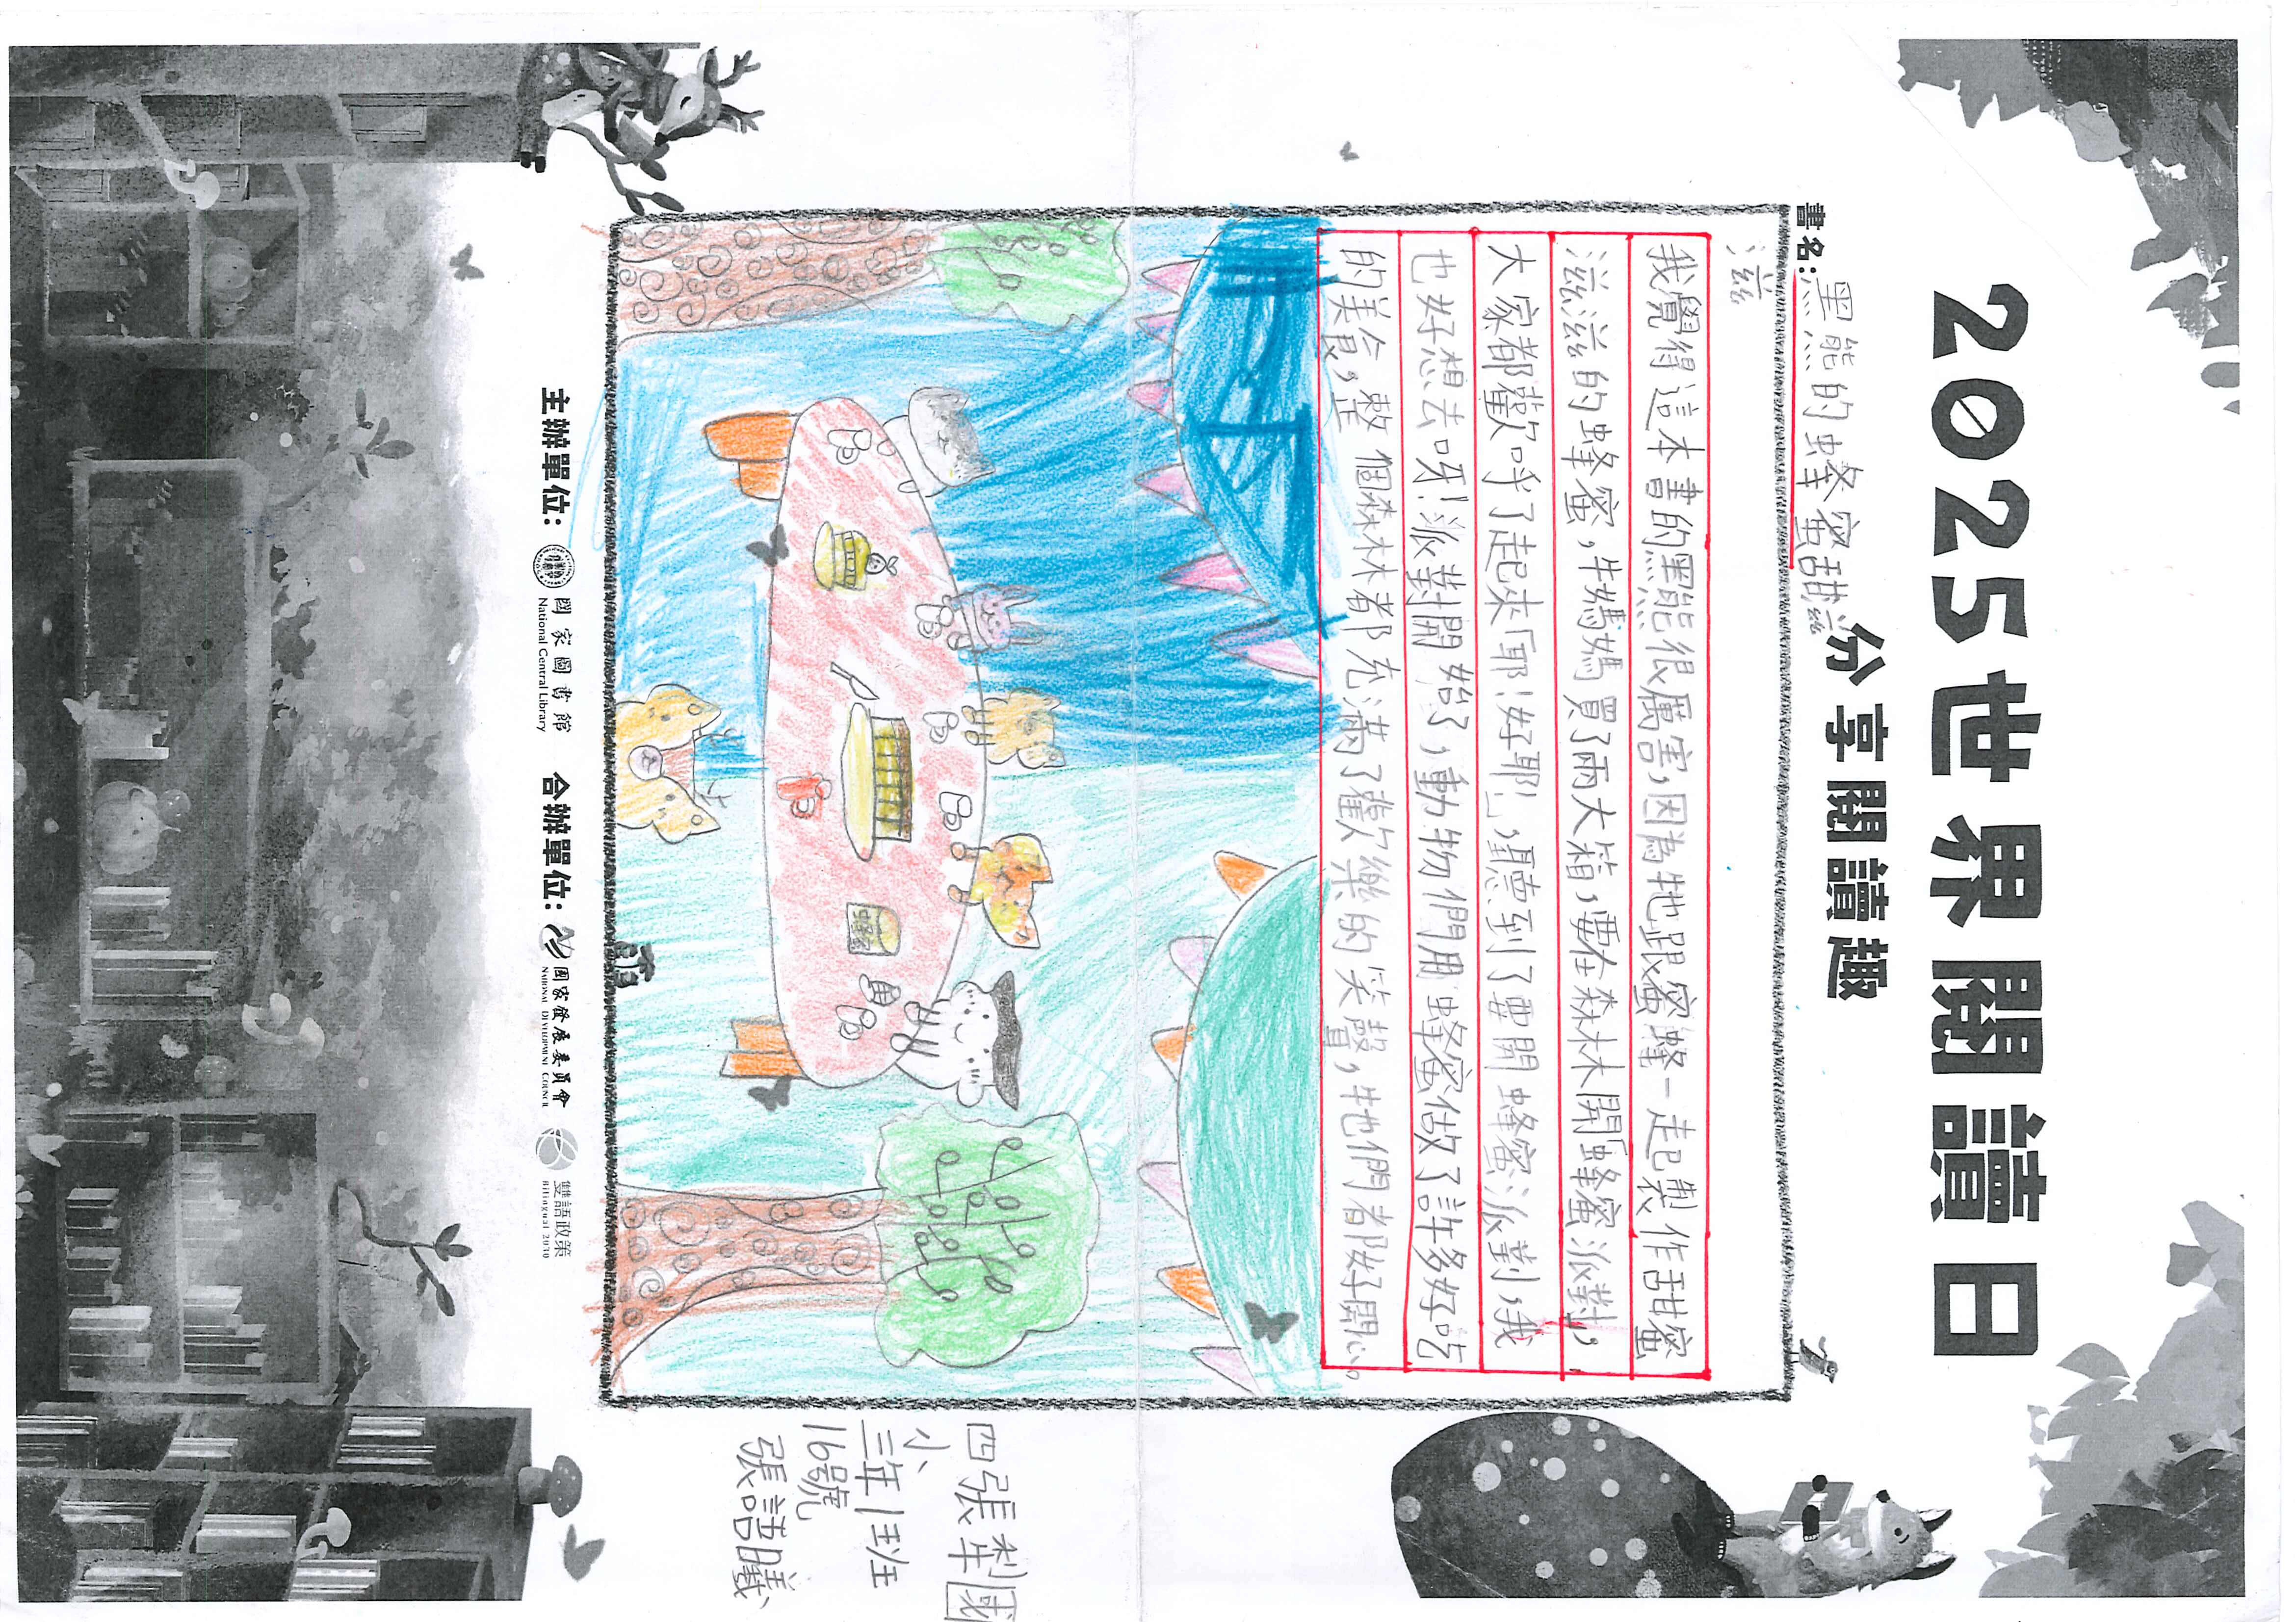 2025世界閱讀日
分享閱讀趣
書名:黑熊的蜂蜜甜滋
滋
我覺得這本書的黑熊很厲害,因為牠跟蜜蜂一起製作甜蜜
滋滋的蜂蜜,牛媽媽買了兩大箱,要在森林開蜂蜜派對,
大家都歡呼了起來「耶!好耶!」,聽到了要開蜂蜜派對,我
也好想去呀!派對開始了,動物們用蜂蜜做了許多好吃
的美食,整個森林都充滿了歡樂的笑聲,牠們都好開心。
蜂蜜
四張犁國
小
三年1班
16號
主辦單位:
國家圖書館
National Central Library
合辦單位:
國家發展委員會
NATIONAL DEVELOPMENT COUNCIL
雙語政策
Bilingual 2030